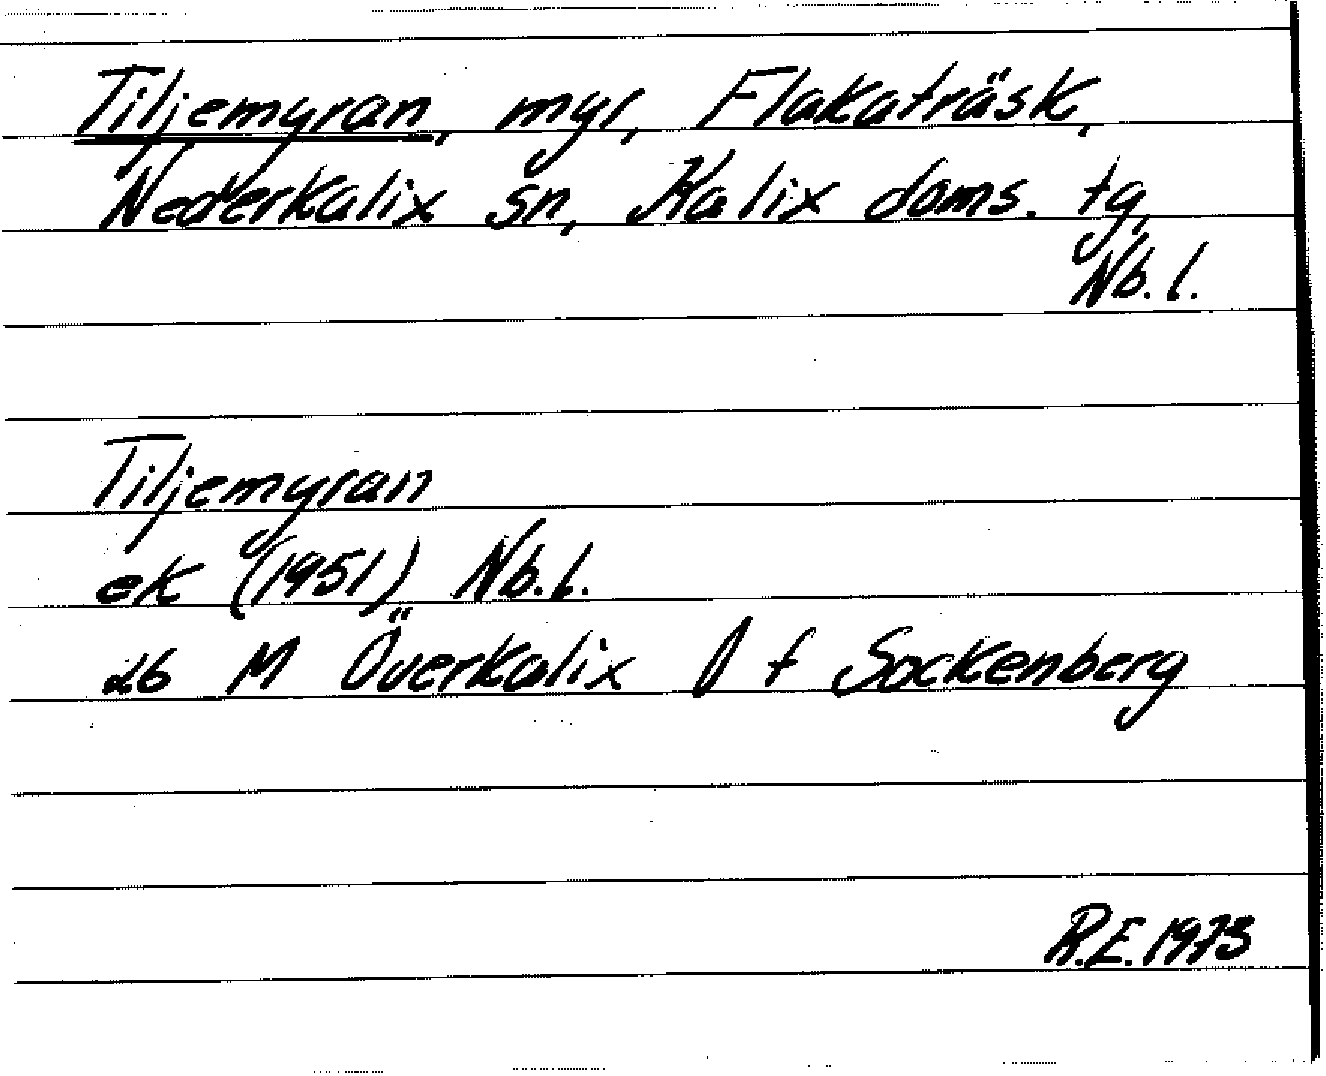 Tiljemyran, myr, Flakaträsk,
Nederkalix sn, Kalix doms. tg,
Nb. l.
Tiljemyran
ek (1951) Nb. l.
26 M Överkalix f Sockenberg
R.E. 1973